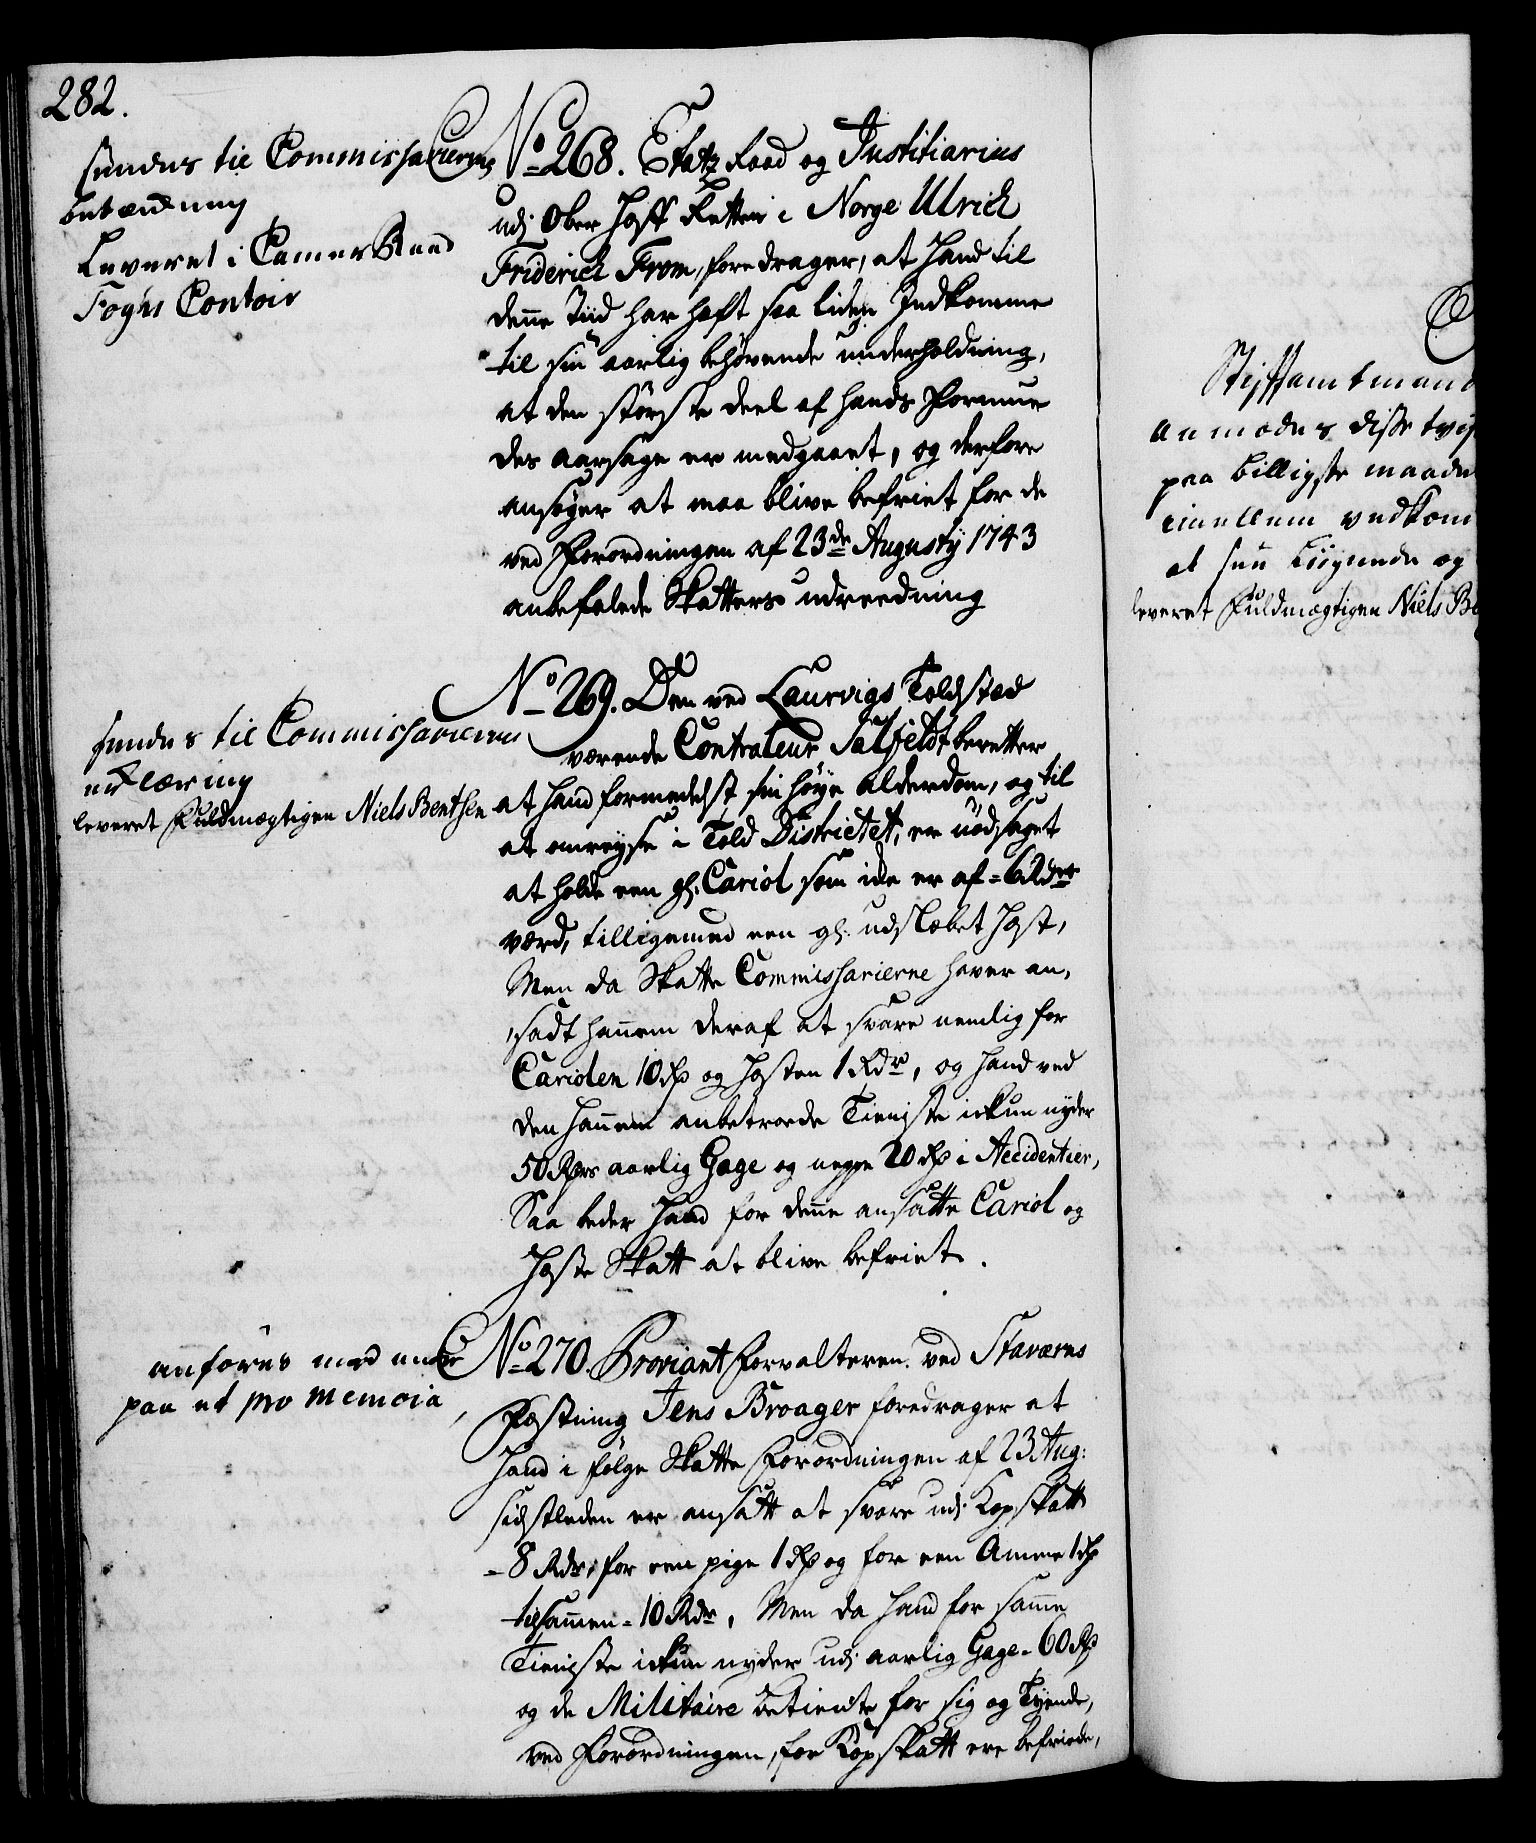 282.
sendes til Commissariernes
betænkning
Leveret i Camer Raad
Foghs Contoir
No 268. Etatz Raad og Justitiarius
udj Ober Hoff Retten i Norge Ulrich
Friderich From, foredrager, at Hand til
denne Tiid har haft saa liden Indkomme
til sin aarlig behøvende underholdning,
at den største deel af hands Formue
des aarsage er medgaaet, og derfore
ansøger at maa blive befriet for de
ved Forordningen af 23de Augusty 1743
anbefalede Skatters udreedning
sendes til Commissariernes
erklæring
leveret Fuldmægtigen Niels Benthen
No 269. Den ved Laurvigs Toldsted
værende Controleur Salfeldt beretter
at hand formedelst sin høye alderdom, og til
at omreyse i Told Districtet, er nødsaget
at holde een gl. Cariol som icke er af = 6 Rdr
værd, tilligemed een gl. udslæbet Hest,
Men da Skatte Commissarierne haver an,
sadt hannem deraf at svare nemlig for
Cariolen 10 Rd og Hesten 1 Rdr, og hand ved
den hannem anbetroede Tieniste ickun nyder
50 Rdrs aarlig Gage og neppe 20 Rd i Accidentier,
Saa beder Hand for denne ansatte Cariol og
Heste Skatt at blive befriet.
anføres med meere
paa et pro memoria
No 270. Proviant Forvalteren ved Staværns
Fæstning Jens Broager foredrager at
Hand i følge Skatte Forordningen af 23 Aug:
sidstleden er ansatt at svare udj Kopskatt
- 8 Rdr, for een pige 1 Rd og for een Amme 1 Rd
tilsammen = 10 Rdr, Men da Hand for samme
Tieniste ickun nyder udj aarlig Gage = 60 Rd
og de Militaire betiente for sig og Tyende,
ved Forordningen, for Kopskatt ere befriede,
Stiftamtmand
anmodes disse
paa billigste maade
imellem vedkom
at see
og
leveret Fuldmægtigen Niels Be